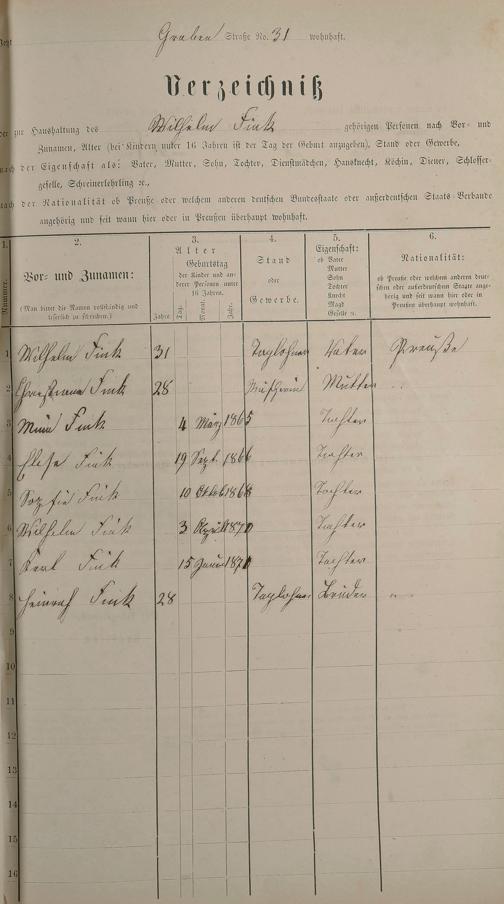 Graben Straße No. 31 wohnhaft.
Verzeichniß
der zur Haushaltung des Wilhelm Fink gehörigen Personen nach Vor- und
Zunamen, Alter (bei Kindern unter 16 Jahren ist der Tag der Geburt anzugeben), Stand oder Gewerbe,
nach der Eigenschaft als: Vater, Mutter, Sohn, Tochter, Dienstmädchen, Hausknecht, Köchin, Diener, Schlosser-
geselle, Schreinerlehrling ꝛc.,
nach der Nationalität ob Preuße oder welchem anderen deutschen Bundesstaate oder außerdeutschen Staats-Verbande
angehörig und seit wann hier oder in Preußen überhaupt wohnhaft.
1. 2. 3. 4. 5. 6.
Nummer.
Vor- und Zunamen:
(Man bittet die Namen vollständig und
leserlich zu schreiben.)
Alter
Geburtstag
der Kinder und an-
derer Personen unter
16 Jahren.
Jahre Tag. Monat. Jahr.
Stand
oder
Gewerbe.
Eigenschaft:
ob Vater
Mutter
Sohn
Tochter
Knecht
Magd
Geselle u.
Nationalität:
ob Preuße oder welchem anderen deut-
schen oder außerdeutschen Staate ange-
hörig und seit wann hier oder in
Preußen überhaupt wohnhaft.
1 Wilhelm Fink 31 Taglohner Vater Preuße
2 Fink 28 Mutter "
3 Mina Fink 4 März 1865 Tochter
4 Elise Fink 19 Sept. 1866 Tochter
5 Sophie Fink 10 1868 Tochter
6 Wilhelm Fink 3 April 1870 Tochter
7 Karl Fink 15 Tochter
8 Heinrich Fink 28 Taglohner Bruder "
9
10
11
12
13
14
15
16